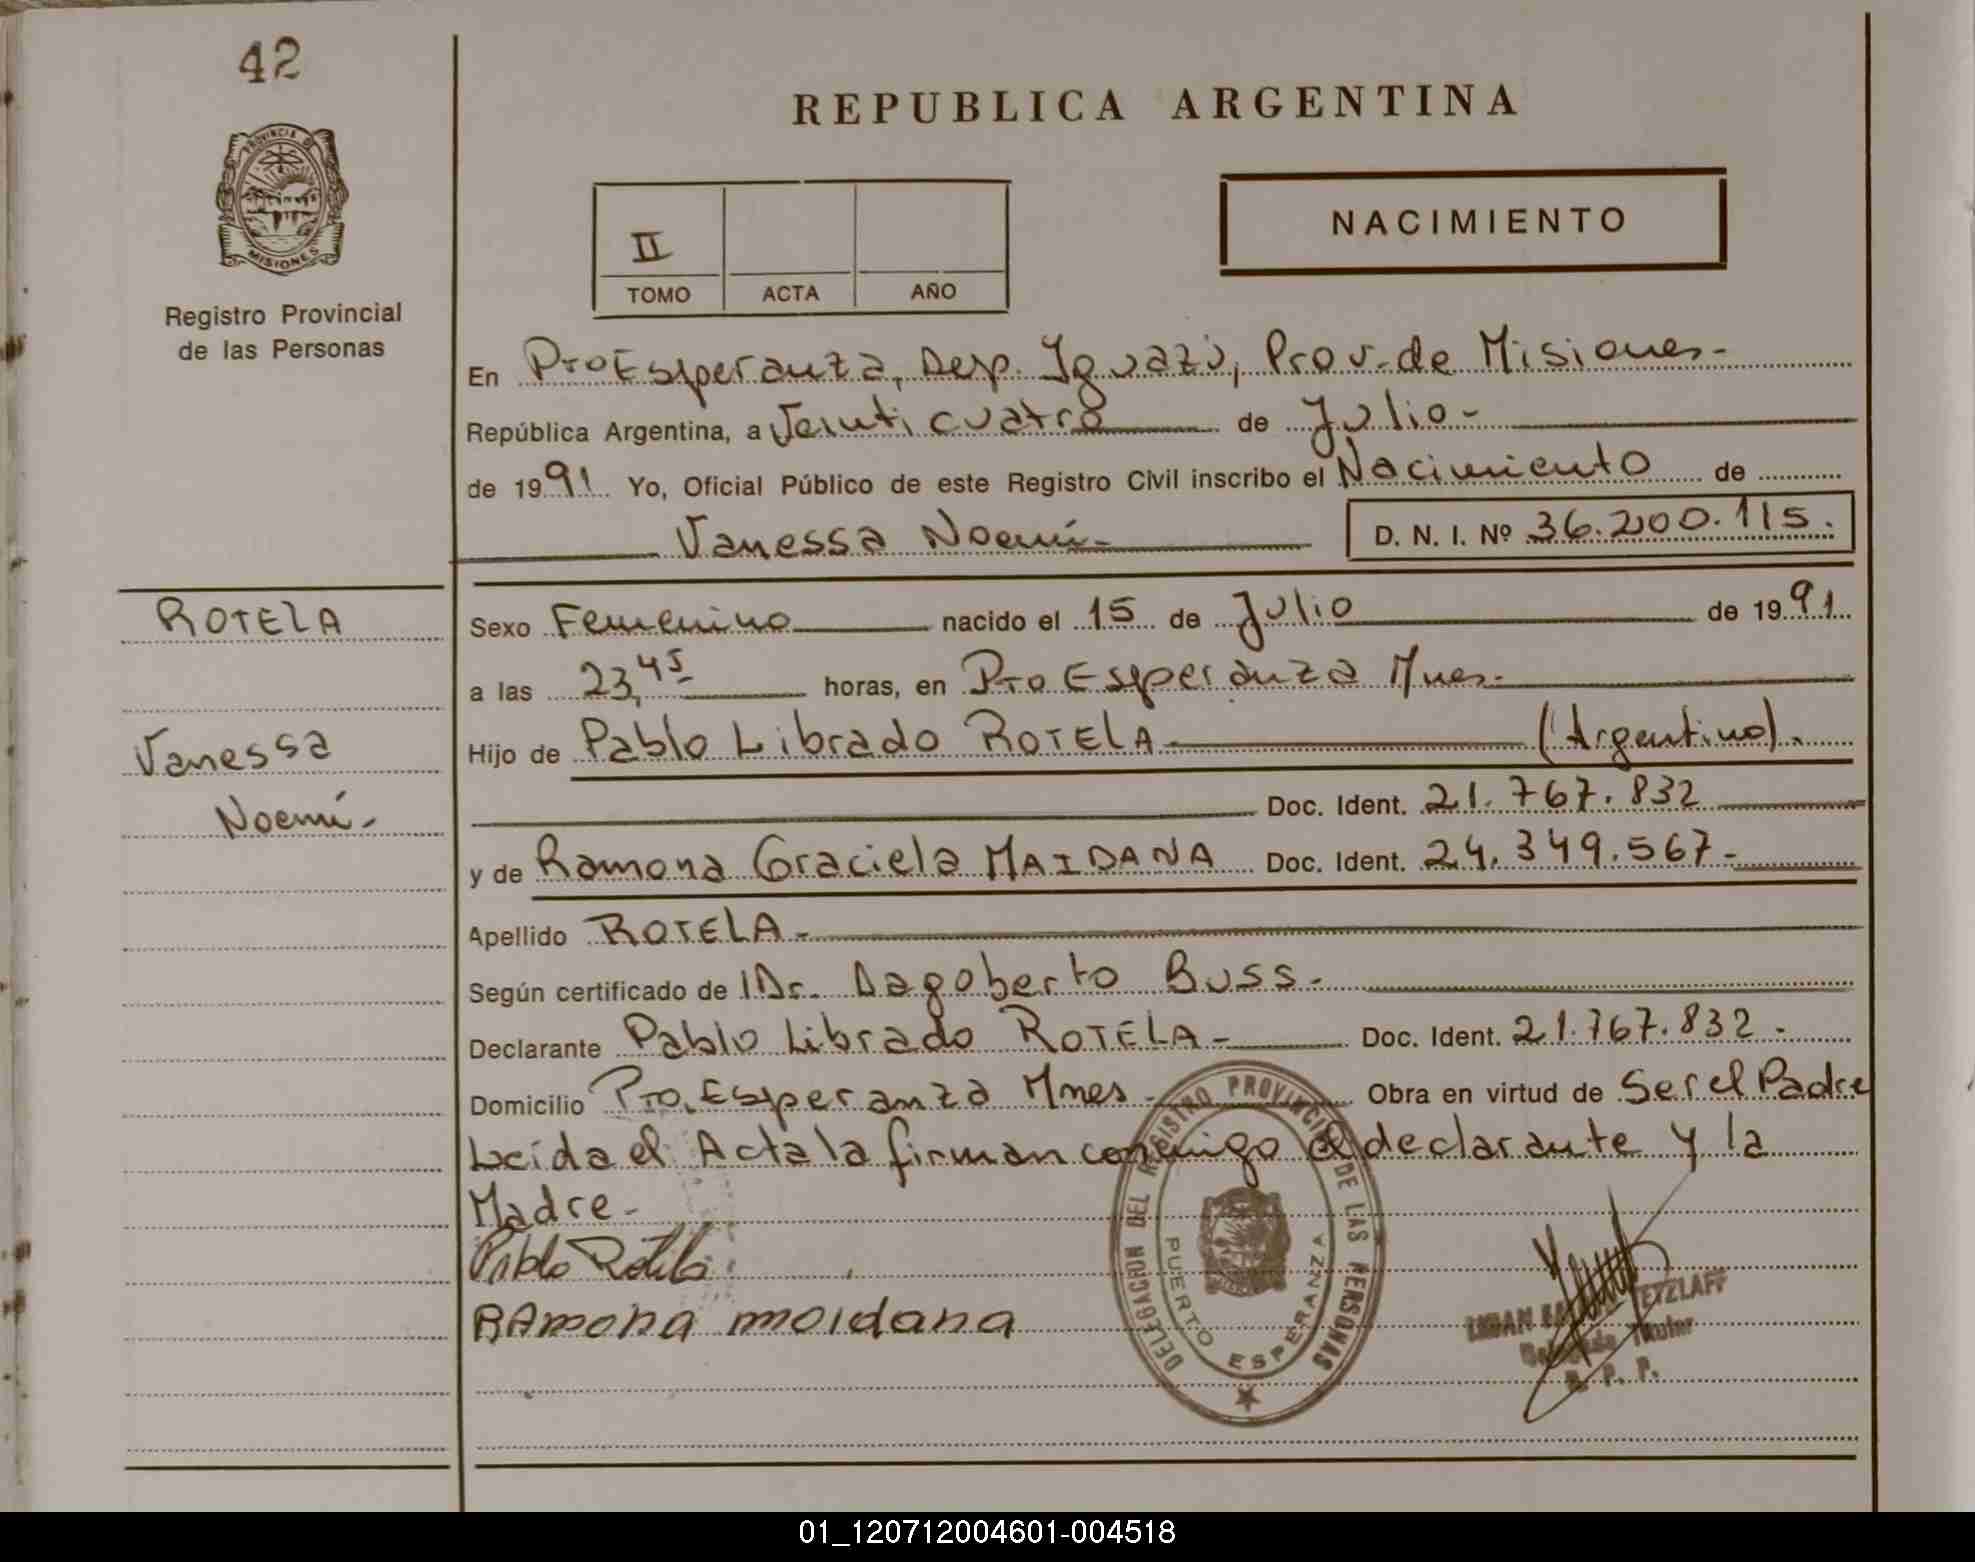 42
PROVINCIA DE
MISIONES
Registro Provincial
de las Personas
ROTELA
Vanessa
Noemí.-
REPUBLICA ARGENTINA
II
TOMO ACTA AÑO
NACIMIENTO
En Pto Esperanza, Dep. Iguazú, Prov. de Misiones-
República Argentina, a Veinti cuatro de Julio-
de 1991. Yo, Oficial Público de este Registro Civil inscribo el Nacimiento de
Vanessa Noemí-
D. N. I. Nº 36.200.115.
Sexo Femenino nacido el 15 de Julio de 1991
a las 23,45 horas, en Pto Esperanza Mnes.
Hijo de Pablo Librado ROTELA- (Argentino).
Doc. Ident. 21.767.832
y de Ramona Graciela MAIDANA Doc. Ident. 24.349.567-
Apellido ROTELA-
Según certificado de Dr. Dagoberto Buss-
Declarante Pablo Librado ROTELA- Doc. Ident. 21.767.832-
Domicilio Pto. Esperanza Mnes- Obra en virtud de Ser el Padre
Leida el Acta la firman conmigo el declarante y la
Madre-
Pablo Rotela
RAmona moidana
DELEGACION DEL REGISTRO PROVINCIAL DE LAS PERSONAS
PUERTO ESPERANZA
Titular
R. P. P.
01_120712004601-004518